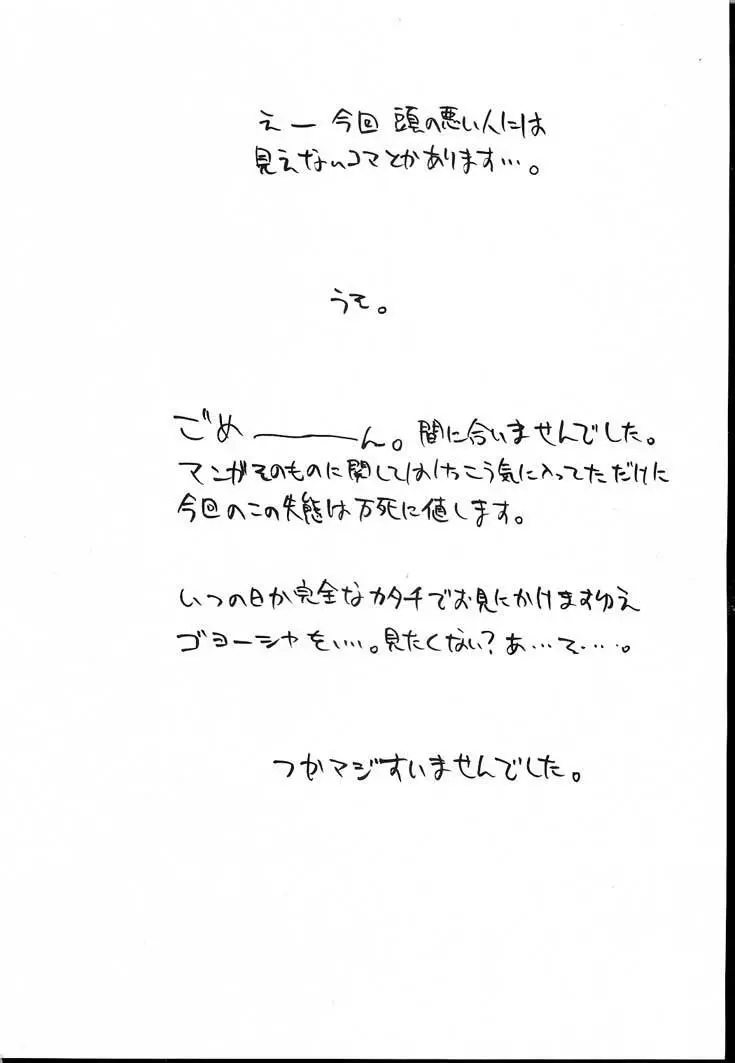 えー 今回 頭の悪い人には
見えないコマとかあります…。
うそ。
ごめーーーん。間に合いませんでした。
マンガそのものに関してはけっこう気に入ってただけに
今回のこの失態は万死に値します。
いつの日か完全なカタチでお見にかけますゆえ
ゴヨーシャを‥‥。見たくない?あ…そ‥‥。
つかマジすいませんでした。